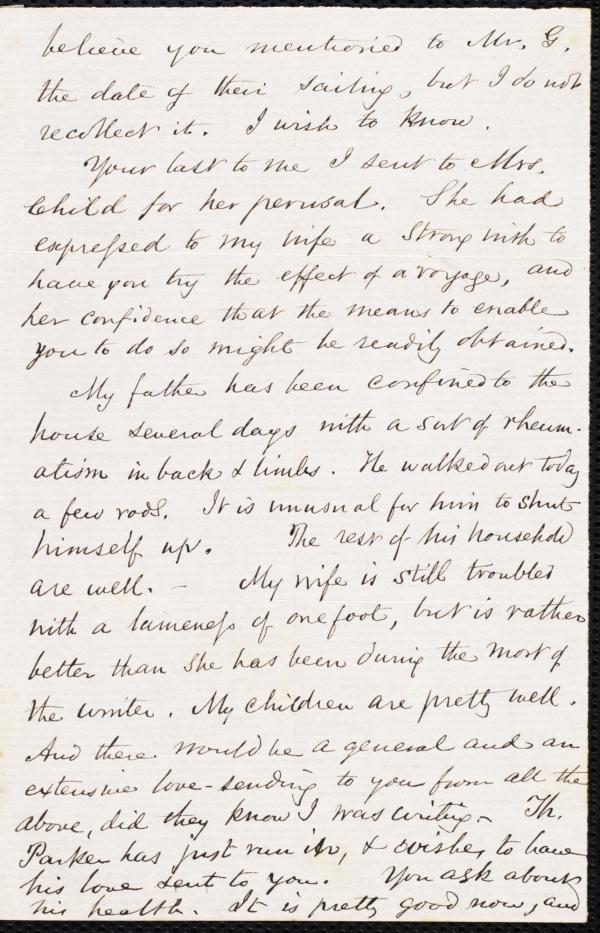 believe you mentioned to Mr. G.
the date of their sailing, but I do not
recollect it. I wish to know.
Your last to me I sent to Mrs.
Child for her perusal. She had
expressed to my wife a strong wish to
have you try the effect of a voyage, and
her confidence that the means to enable
you to do so might be readily obtained.
My father has been confined to the
house several days with a sort of rheum-
atism in back & limbs. He walked out today
a few rods. It is unusual for him to shut
himself up. The rest of his household
are well. - My wife is still troubled
with a lameness of one foot, but is rather
better than she has been during the most of
the winter. My children are pretty well.
And there would be a general and an
extensive love-sending to you from all the
above, did they know I was writing. - Th.
Parker has just run in, & wishes to have
his love sent to you. You ask about
his health. It is pretty good now, and